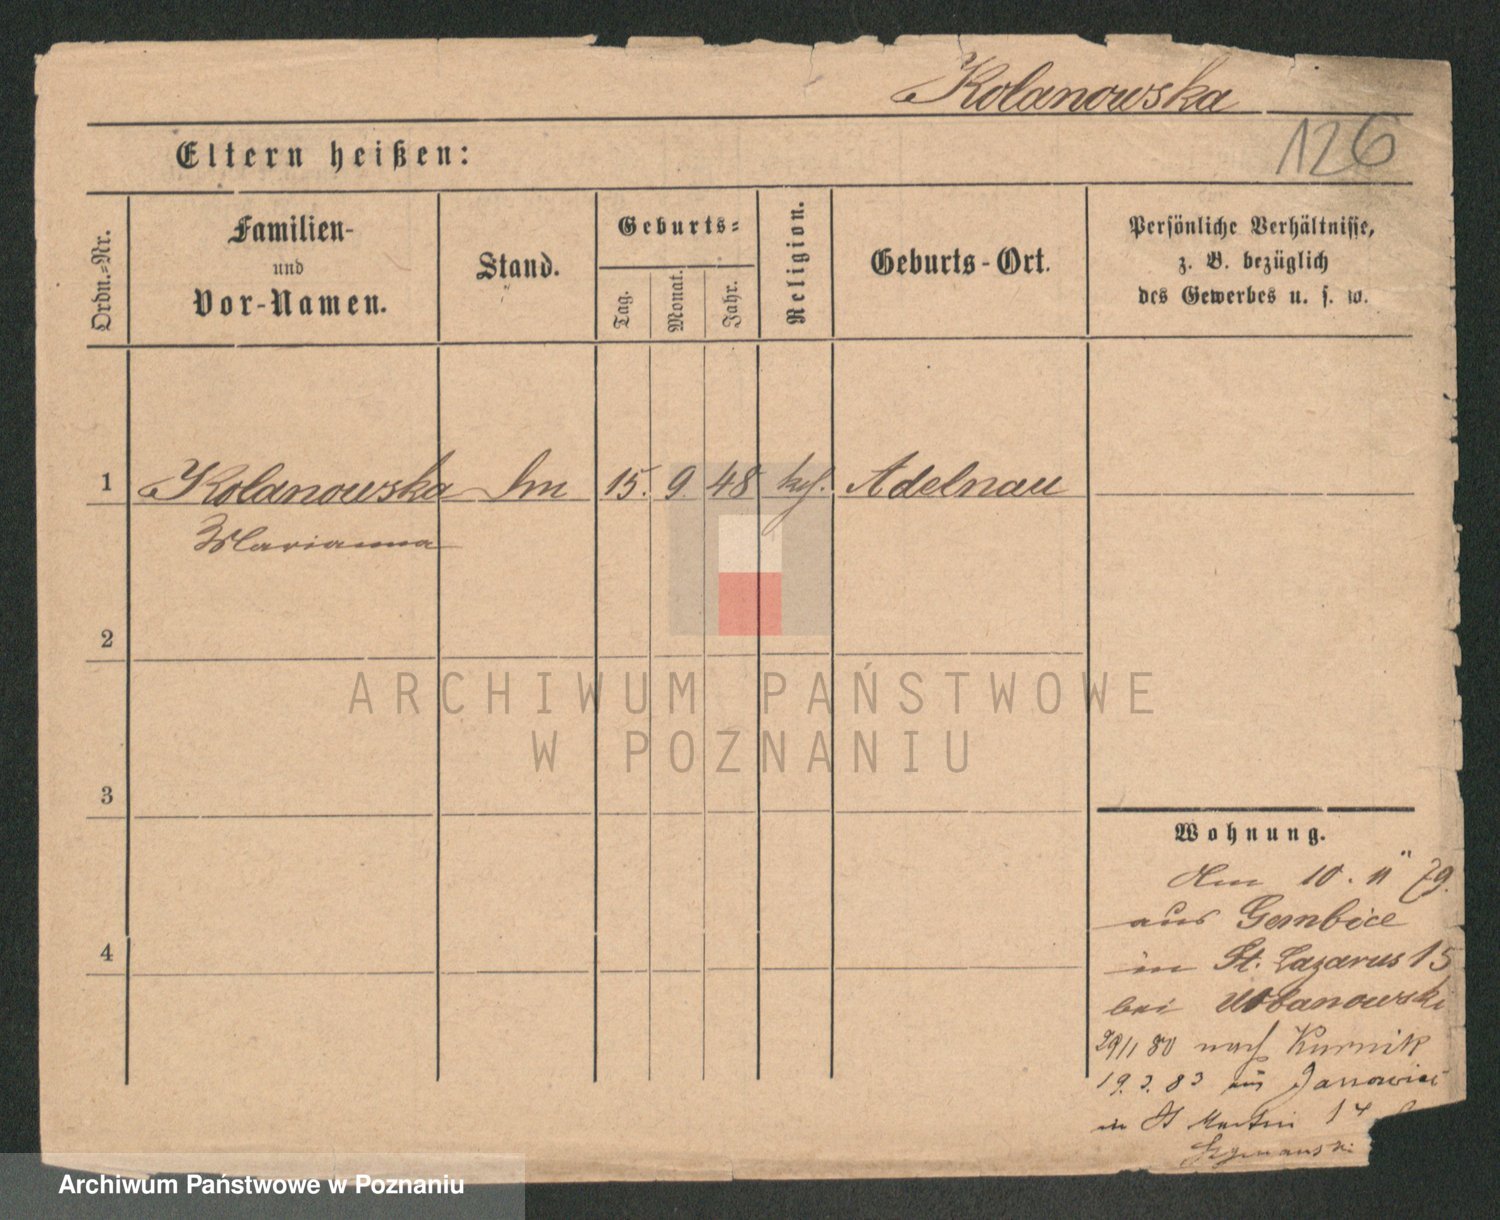 Kolanowska
126
Eltern heißen:
Ordn.-Nr.
Familien-
und
Vor-Namen.
Stand.
Geburts-
Tag.
Monat.
Jahr.
Religion.
Geburts-Ort.
Persönliche Verhältnisse,
z. B. bezüglich
des Gewerbes u. s. w.
1 Kolanowska 15. 9. 48 Adelnau
Marianna
2
3
4
ARCHIWUM PAŃSTWOWE
W POZNANIU
Wohnung.
10. 11 79.
aus Gembice
in St. Lazarus 15
bei Urbanowski
29/1 80 nach Kurnik
19. 3. 83 aus
in St Martin 14
Szymanski
Archiwum Państwowe w Poznaniu